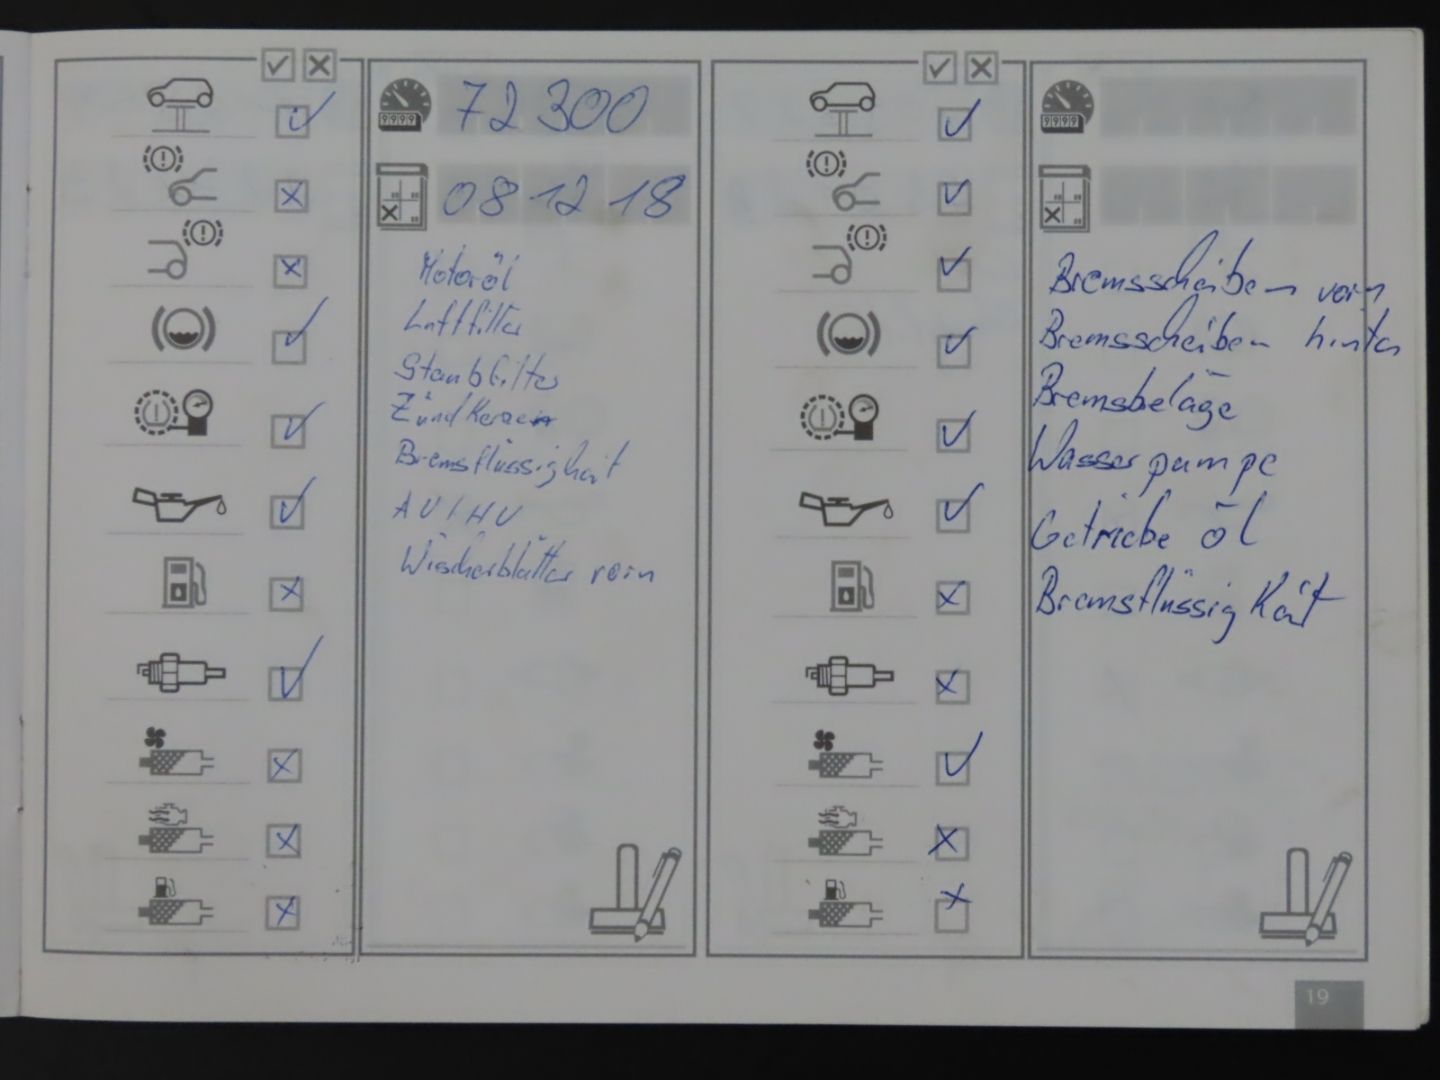 9999
72 300
08 12 18
Motoröl
Luftfilter
Staubfilter
Zündkerzen
Bremsflüssigkeit
AU/HU
Wischerblätter vorn
9999
Bremsscheiben vorn
Bremsscheiben hinten
Bremsbeläge
Wasserpumpe
Getriebe öl
Bremsflüssigkeit
19